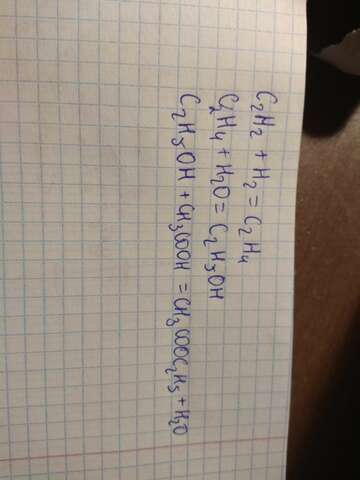 C₂H₂ + H₂ = C₂H₄
C₂H₄ + H₂O = C₂H₅OH
C₂H₅OH + CH₃COOH = CH₃COOC₂H₅ + H₂O